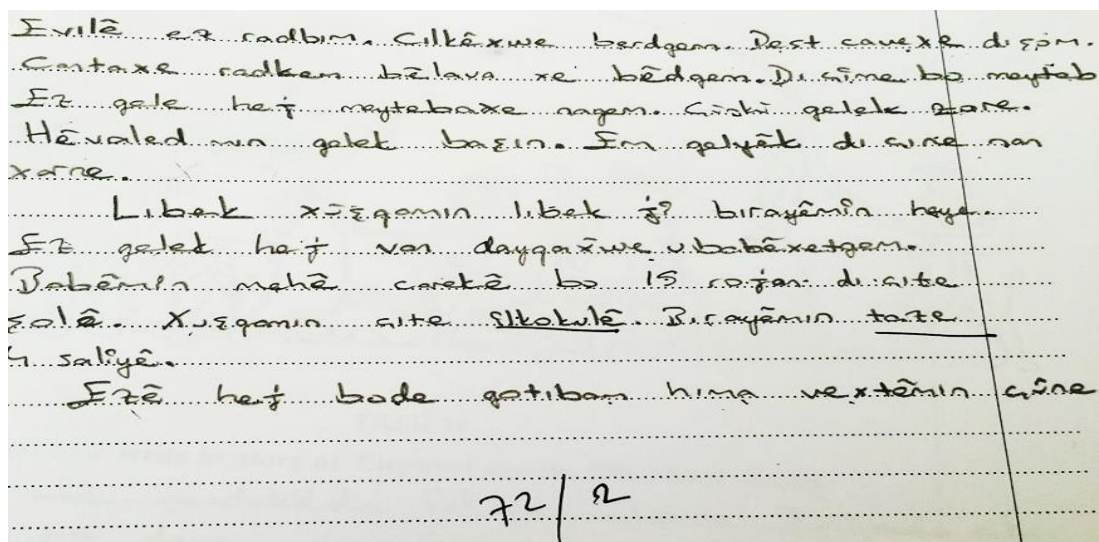 Evılê ez radbım. Cılkêxwe berdgem. Dest cavexe dışom.
Cantaxe radkem bêlava xe bêdgem. Dı çime bo meytab
Ez gele hej meytebaxe nagem. Çiski gelek zore.
Hêvaled mın gelek başın. Em gelyêk dı çıne nan
xarne.
Lıbek xüşgemın lıbek jı? bırayêmın heye.
Ez gelek hej van daygaxwe u babêxetgem.
Babêmın mehê carekê bo 15 rojan dı çıte
şolê. Xuşgamın çıte ılkokulê. Bırayêmın taze
4 saliyê.
Ezê hej bode gotıbam hıma vextêmın çûne
72/2